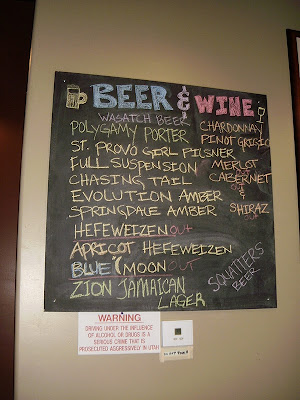 BEER & WINE
WASATCH BEER
POLYGAMY PORTER
ST. PROVO GIRL PILSNER
FULL SUSPENSION
CHASING TAIL
EVOLUTION AMBER
SPRINGDALE AMBER
HEFEWEIZEN OUT
APRICOT HEFEWEIZEN
BLUE MOON OUT
ZION JAMAICAN
LAGER
CHARDONNAY
PINOT GRIGIO
MERLOT
CABERNET
OUT
&
SHIRAZ
SQUATTERS
BEER
WARNING
DRIVING UNDER THE INFLUENCE
OF ALCOHOL OR DRUGS IS A
SERIOUS CRIME THAT IS
PROSECUTED AGGRESSIVELY IN UTAH